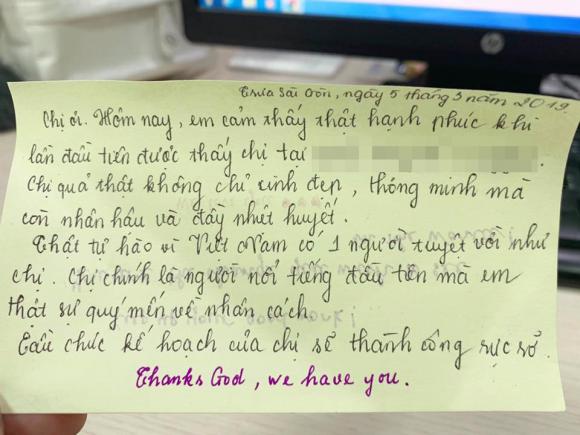 Trưa Sài Gòn, ngày 5 tháng 3 năm 2019.
Chị ơi. Hôm nay, em cảm thấy thật hạnh phúc khi
lần đầu tiên được thấy chị tại
Chị quả thật không chỉ xinh đẹp, thông minh mà
còn nhân hậu và đầy nhiệt huyết.
Thật tự hào vì Việt Nam có 1 người tuyệt vời như
chị. Chị chính là người nổi tiếng đầu tiên mà em
thật sự quý mến về nhân cách.
Cầu chúc kế hoạch của chị sẽ thành công rực rỡ.
Thanks God, we have you.
hp